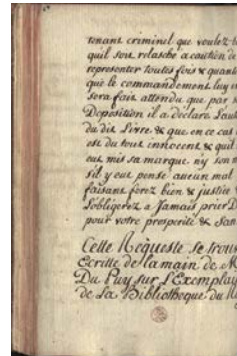 tenant criminel que voulez
quil soit relasché a caution de
representer toutes fois & quant
que le commandement luy en
sera fait attendu que par s
Deposition il a declaré Laut
du dit Livre & que en ce cas
est du tout innocent & quil
eut mis sa marque ny son n
sil y eut pensé aucun mal
faisant ferez bien & justice
Lobligerez a Jamais prier D
pour votre prosperité & San
Cette Requeste se trouv
Ecritte de la main de M
Du Puy sur L'Exemplai
de La Bibliotheque du R